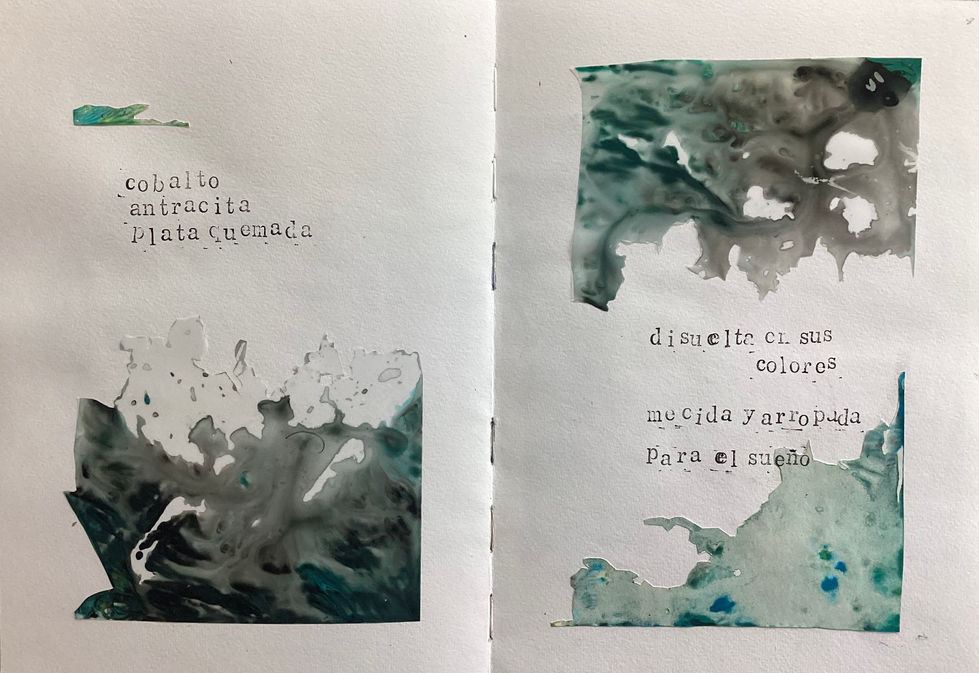 cobalto
antracita
plata quemada
disuelta en sus
colores
mecida y arropada
para el sueño